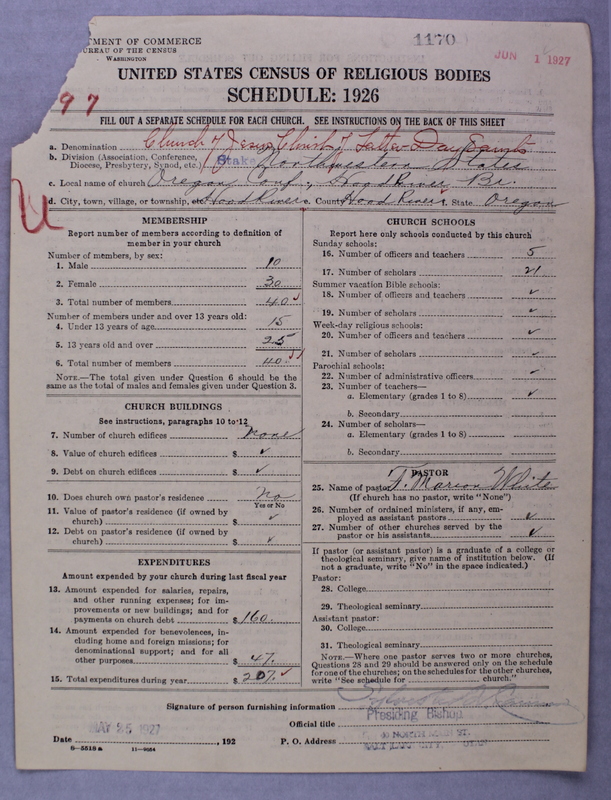 1170
JUN 1 1927
TMENT OF COMMERCE
BUREAU OF THE CENSUS
WASHINGTON
UNITED STATES CENSUS OF RELIGIOUS BODIES
SCHEDULE: 1926
97
FILL OUT A SEPARATE SCHEDULE FOR EACH CHURCH. SEE INSTRUCTIONS ON THE BACK OF THIS SHEET
a. Denomination Church of Jesus Christ of Latter Day Saints
b. Division (Association, Conference, Diocese, Presbytery, Synod, etc.) Stake Northwestern States
c. Local name of church Oregon Conf., Hood River Br.
d. City, town, village, or township, etc. Hood River County Hood River State Oregon
MEMBERSHIP
Report number of members according to definition of
member in your church
Number of members, by sex:
1. Male 10
2. Female 30
3. Total number of members 40
Number of members under and over 13 years old:
4. Under 13 years of age 15
5. 13 years old and over 25
6. Total number of members 40
NOTE.—The total given under Question 6 should be the
same as the total of males and females given under Question 3.
CHURCH BUILDINGS
See instructions, paragraphs 10 to 12
7. Number of church edifices none
8. Value of church edifices $ ✓
9. Debt on church edifices $ ✓
10. Does church own pastor's residence No
Yes or No
11. Value of pastor's residence (if owned by
church) $ ✓
12. Debt on pastor's residence (if owned by
church) $ ✓
EXPENDITURES
Amount expended by your church during last fiscal year
13. Amount expended for salaries, repairs,
and other running expenses; for im-
provements or new buildings; and for
payments on church debt $ 160.
14. Amount expended for benevolences, in-
cluding home and foreign missions; for
denominational support; and for all
other purposes $ 47.
15. Total expenditures during year $ 207.
CHURCH SCHOOLS
Report here only schools conducted by this church
Sunday schools:
16. Number of officers and teachers 5
17. Number of scholars 21
Summer vacation Bible schools:
18. Number of officers and teachers ✓
19. Number of scholars ✓
Week-day religious schools:
20. Number of officers and teachers ✓
21. Number of scholars ✓
Parochial schools:
22. Number of administrative officers ✓
23. Number of teachers—
a. Elementary (grades 1 to 8) ✓
b. Secondary
24. Number of scholars—
a. Elementary (grades 1 to 8)
b. Secondary
PASTOR
25. Name of pastor F. Marion White
(If church has no pastor, write "None")
26. Number of ordained ministers, if any, em-
ployed as assistant pastors ✓
27. Number of other churches served by the
pastor or his assistants ✓
If pastor (or assistant pastor) is a graduate of a college or
theological seminary, give name of institution below. (If
not a graduate, write "No" in the space indicated.)
Pastor:
28. College
29. Theological seminary
Assistant pastor:
30. College
31. Theological seminary
NOTE.—Where one pastor serves two or more churches,
Questions 28 and 29 should be answered only on the schedule
for one of the churches; on the schedules for the other churches,
write "See schedule for church."
Signature of person furnishing information
Official title Presiding Bishop
MAY 25 1927
Date , 192 P. O. Address 40 NORTH MAIN ST.
SALT LAKE CITY, UTAH
8-5518a 11-9054